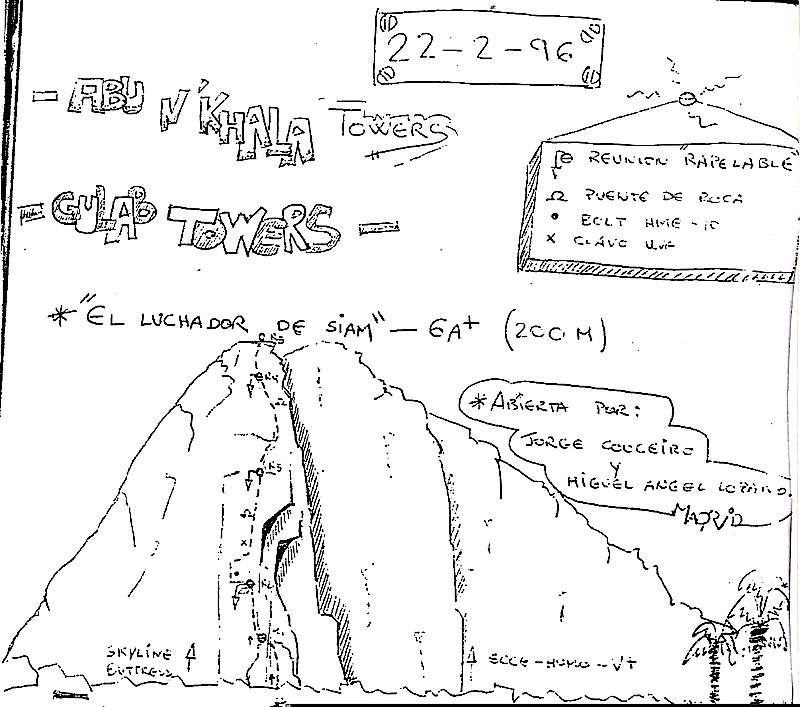 22-2-96
- ABU N'KHALA TOWERS
- GULAB TOWERS -
REUNION "RAPELABLE"
PUENTE DE ROCA
CLAVO
* "EL LUCHADOR DE SIAM" - 6A+ (200 M)
* ABIERTA POR:
JORGE COUCEIRO
Y
MIGUEL ANGEL LOZANO.
MADRID
R5
R4
R3
R2
SKYLINE
BUTTRESS
ECCE-HOMO-V+